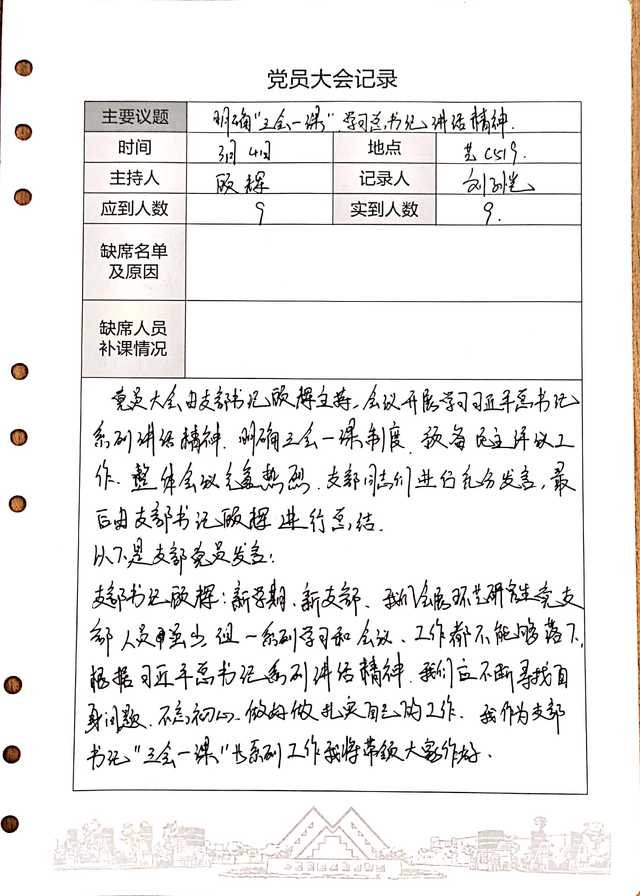 党员大会记录
主要议题 明确"三会一课"学习总书记讲话精神.
时间 3月4日 地点 艺C519.
主持人 顾辉 记录人 刘
应到人数 9 实到人数 9.
缺席名单
及原因
缺席人员
补课情况
党员大会由支部书记顾辉主持,会议开展学习习近平总书记
系列讲话精神.明确三会一课制度,预备民主评议工
作.整体会议气氛热烈.支部同志们进行充分发言,最
后由支部书记顾辉进行总结.
以下是支部党员发言:
支部书记顾辉:新学期、新支部、我们会展环艺研究生党支
部人员 一系列学习和会议、工作都不能够落下,
根据习近平总书记系列讲话精神.我们应不断寻找自
身问题.不忘初心.做好做扎实自己的工作.我作为支部
书记"三会一课"等系列工作我将带领大家作好.